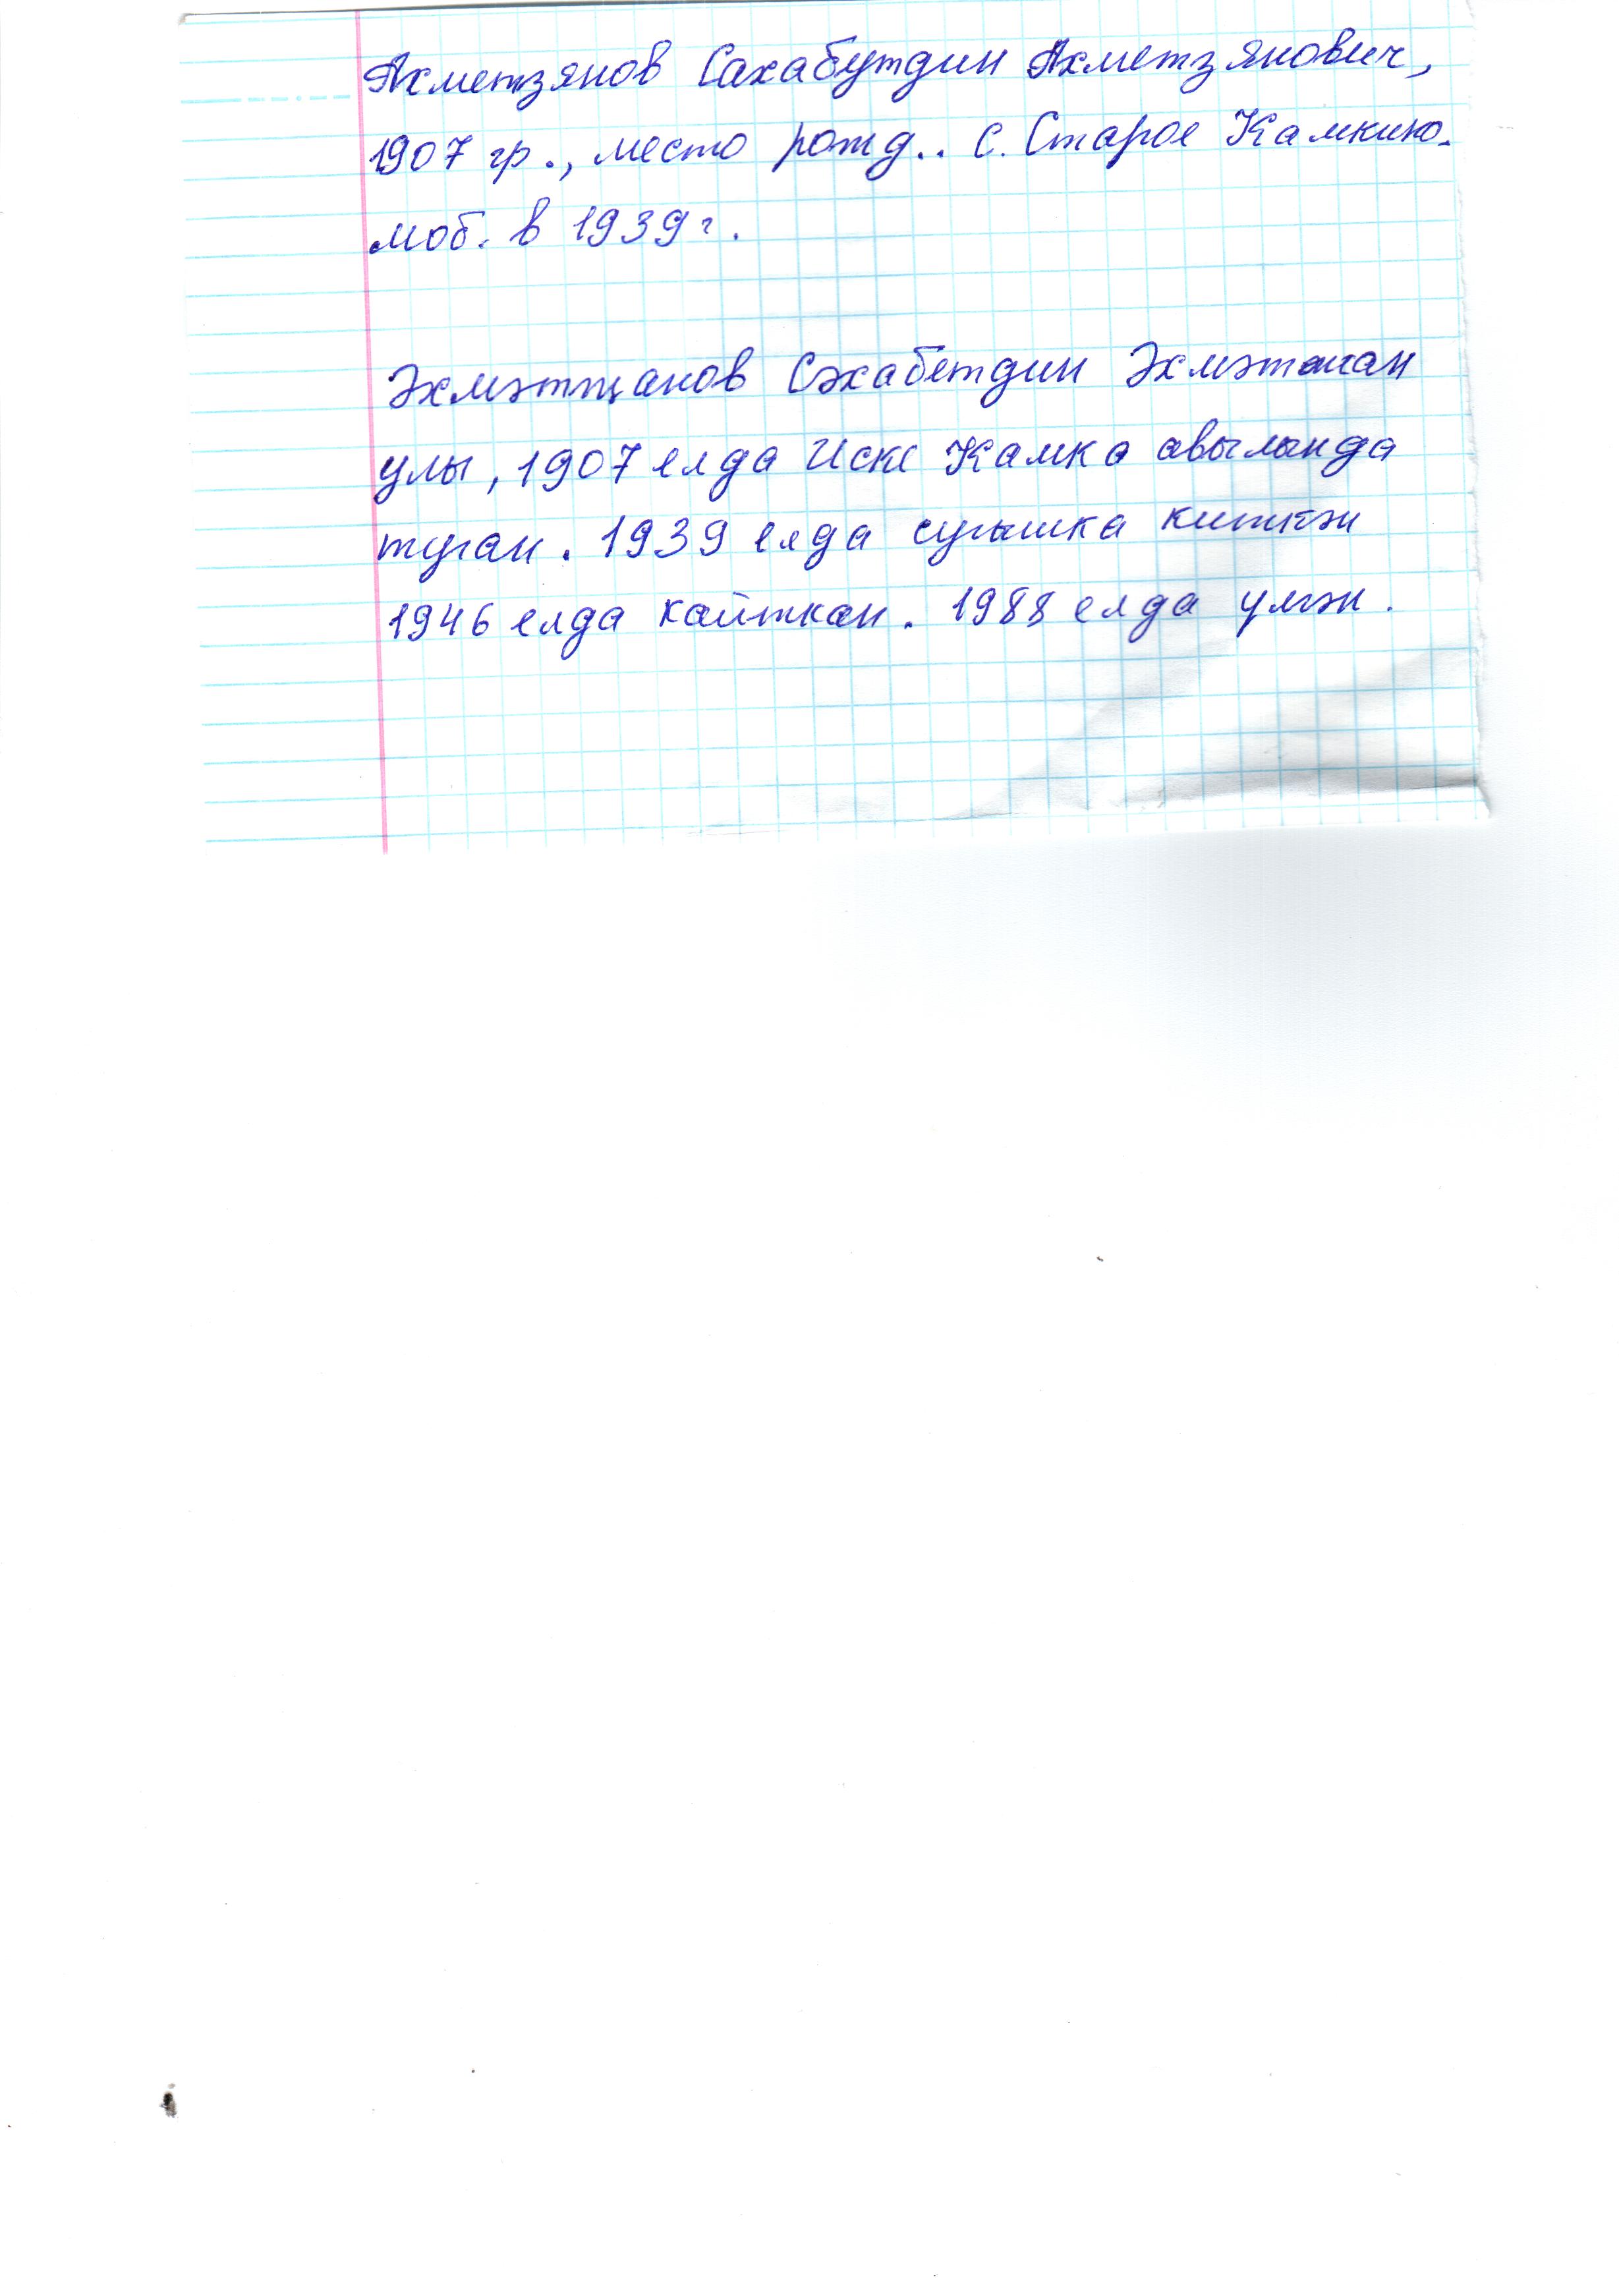 Ахметзянов Сахабутдин Ахметзянович,
1907 гр., место рожд.. с. Старое Камкино.
моб. в 1939 г.
Әхмәтҗанов Сәхабетдин Әхмәтҗан
улы, 1907 елда Иске Камка авылында
туган. 1939 елда сугышка киткән
1946 елда кайткан. 1988 елда үлгән.